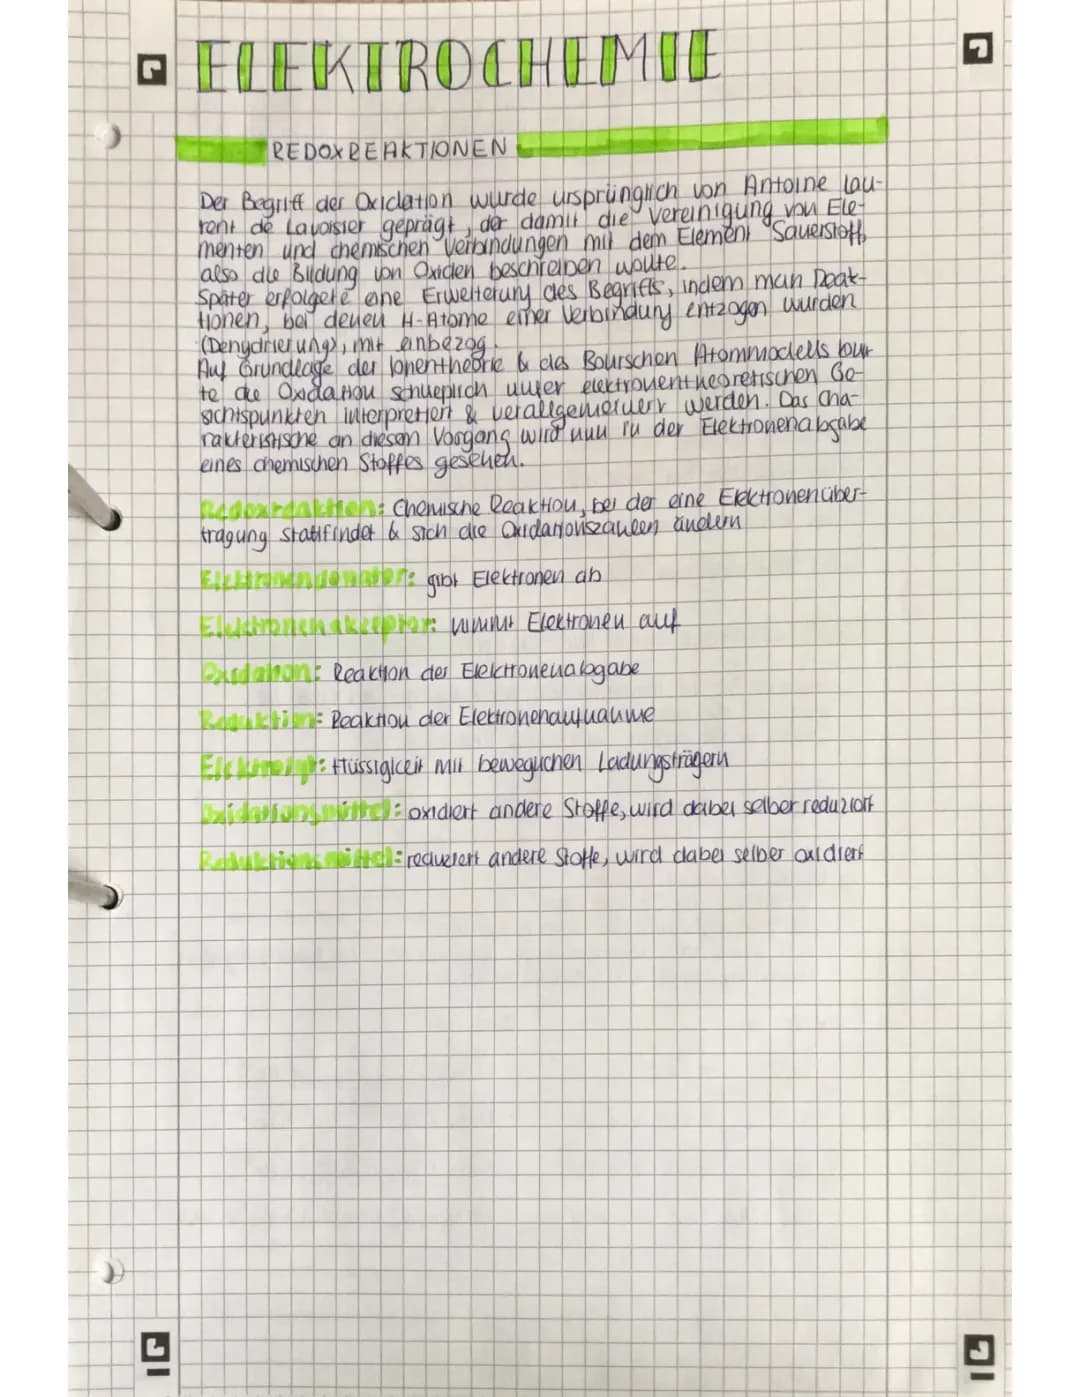 ELEKTROCHEMIE
REDOXREAKTIONEN
Der Begriff der Oxidation wurde ursprünglich von Antoine Lau-
rent de Lavoisier geprägt, der damit die Vereinigung von Ele-
menten und chemischen Verbindungen mit dem Element Sauerstoff,
also die Bildung von Oxiden beschreiben wollte.
Später erfolgete eine Erweiterung des Begriffs, indem man Reak-
tionen, bei denen H-Atome einer Verbindung entzogen wurden
(Dehydrierung), mit einbezog.
Auf Grundlage der Ionentheorie & des Bohrschen Atommodells konn-
te die Oxidation schließlich unter elektronentheoretischen Ge-
sichtspunkten interpretiert & verallgemeinert werden. Das Cha-
rakteristische an diesem Vorgang wird nun in der Elektronenabgabe
eines chemischen Stoffes gesehen.
Redoxreaktion: Chemische Reaktion, bei der eine Elektronenüber-
tragung stattfindet & sich die Oxidationszahlen ändern
Elektronendonator: gibt Elektronen ab
Elektronenakzeptor: nimmt Elektronen auf
Oxidation: Reaktion der Elektronenabgabe
Reduktion: Reaktion der Elektronenaufnahme
Elektrolyt: Flüssigkeit mit beweglichen Ladungsträgern
Oxidationsmittel: oxidiert andere Stoffe, wird dabei selber reduziert
Reduktionsmittel: reduziert andere Stoffe, wird dabei selber oxidiert